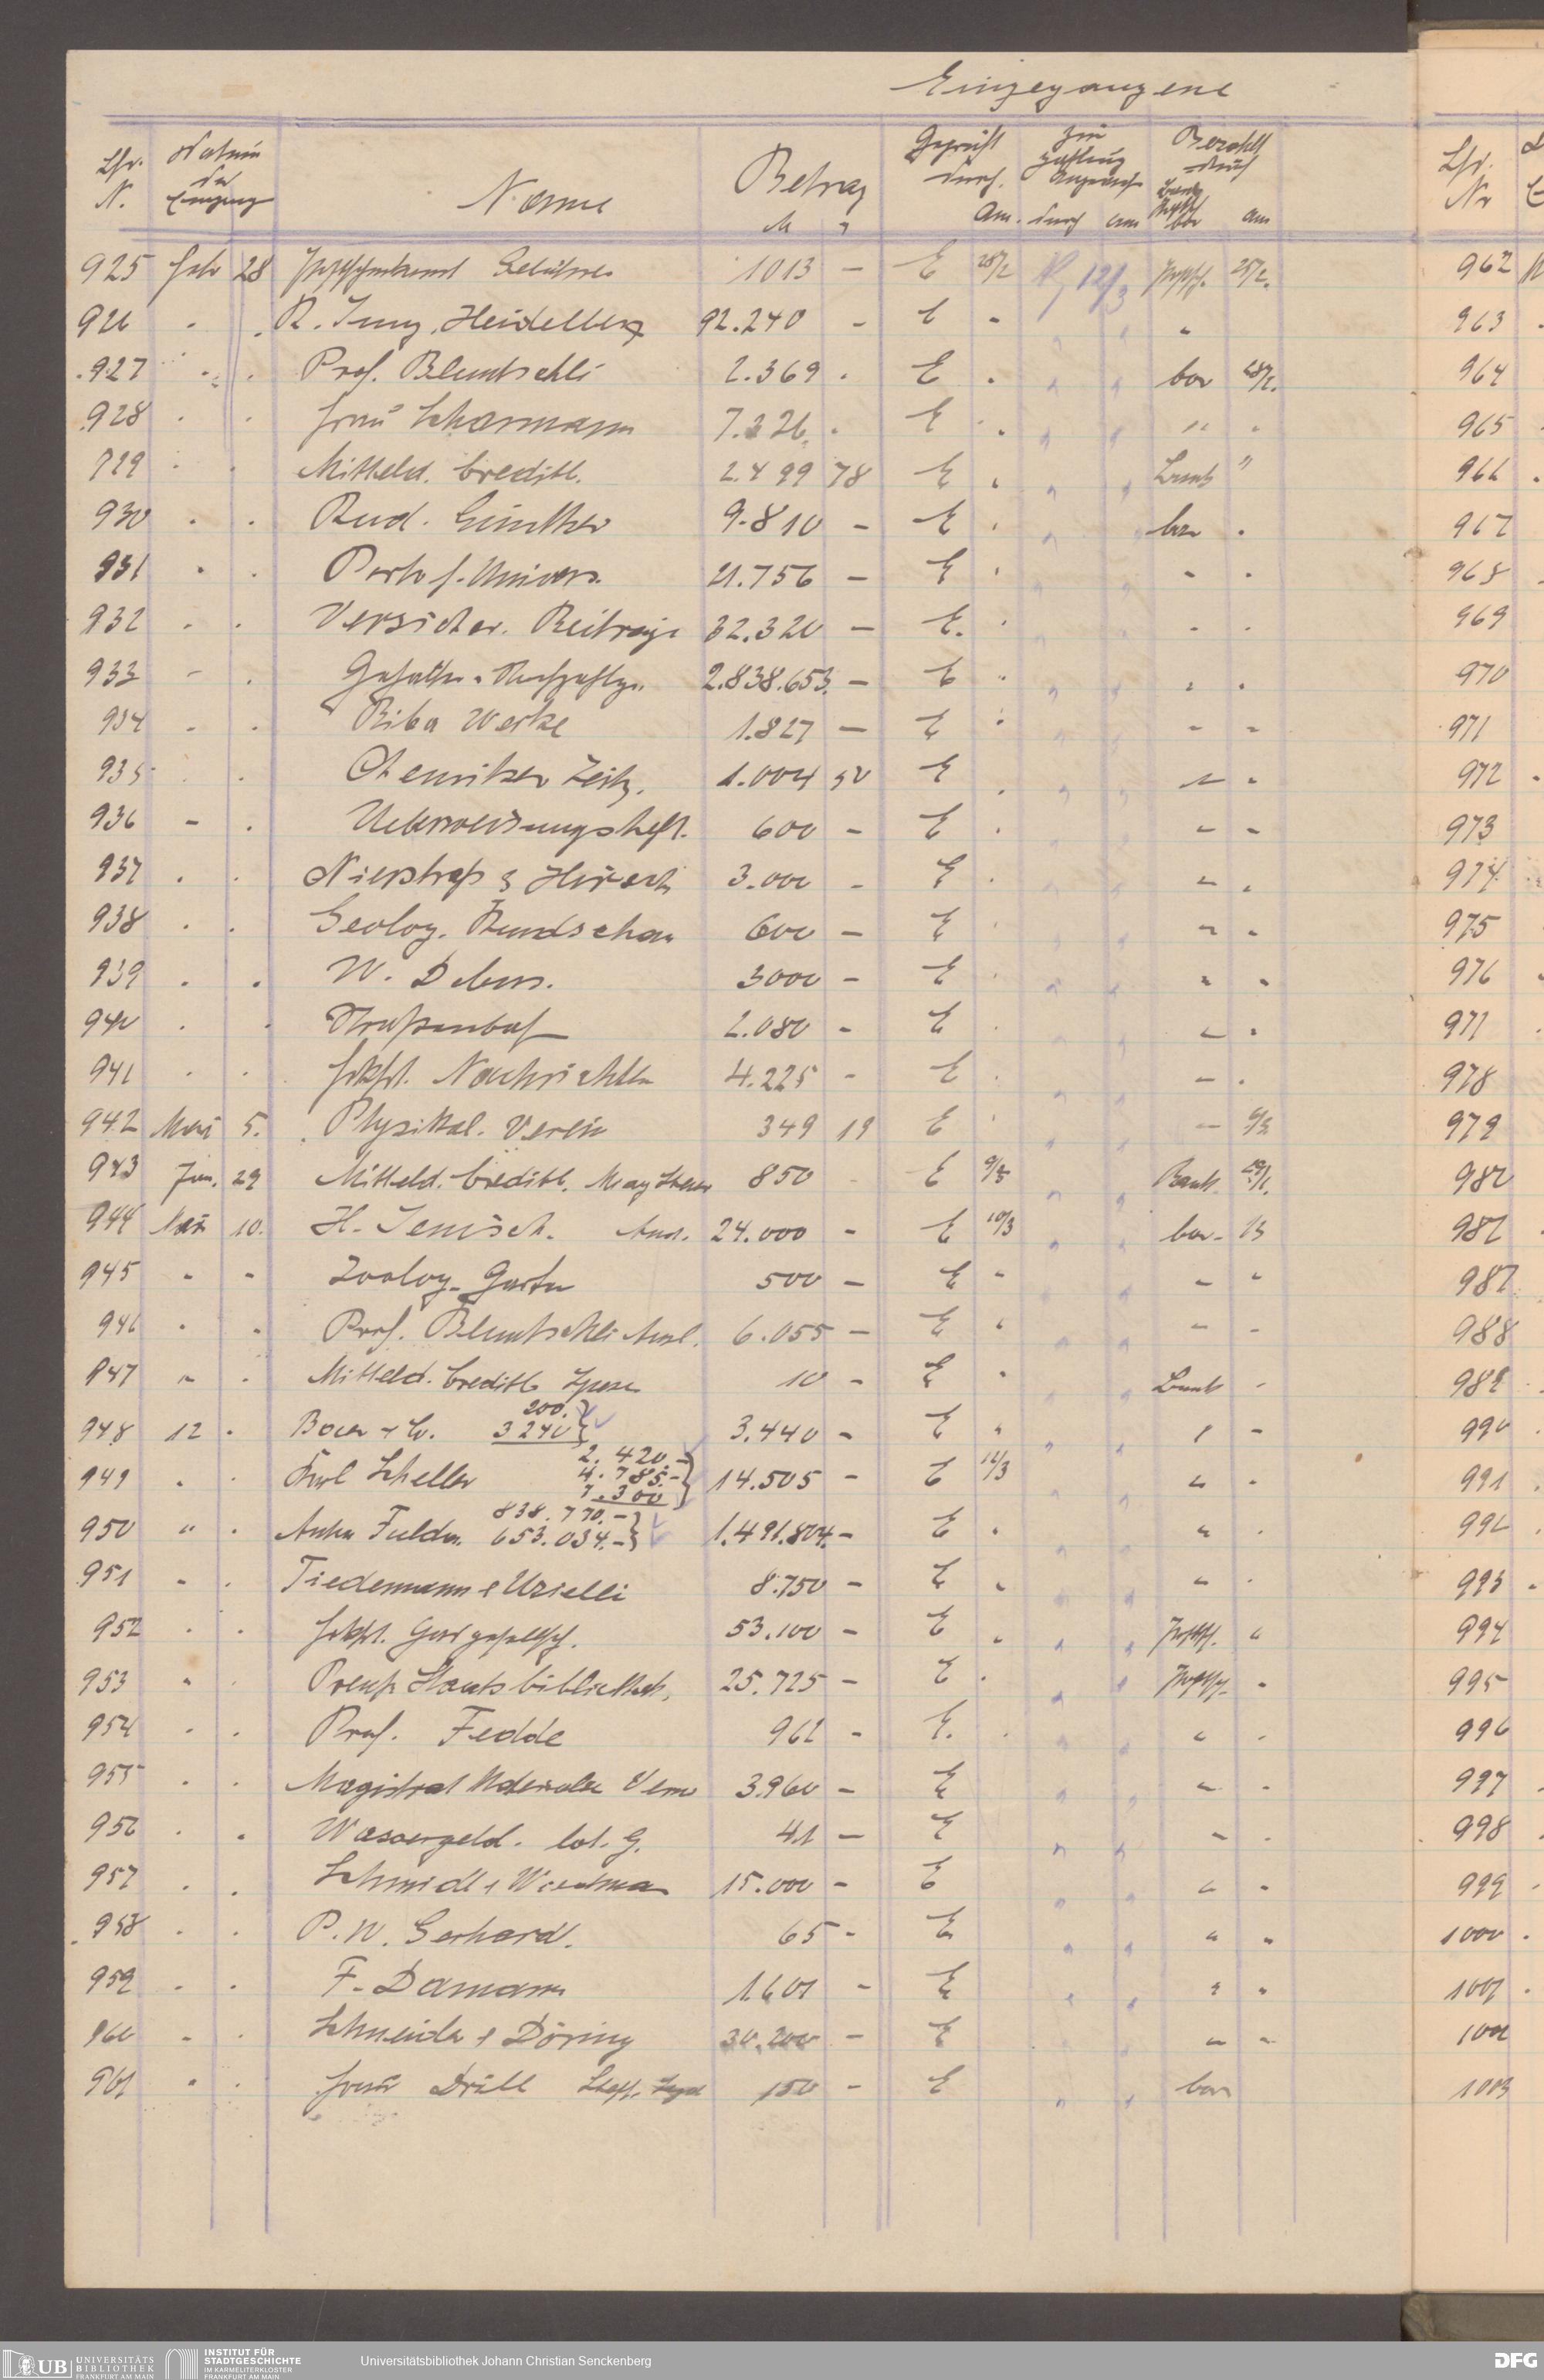 Eingegangene
Lfd. N. Datum der Eingang Name Betrag M Geprüft durch am. Zur Zahlung angewiesen durch am Bezahlt durch Bank Postsch bar am
925 Febr 28 Postscheckamt Gebühren 1013 – E 28/2 12/3 Postsch. 28/2.
926 " . R. Jung, Heidelberg 92.240 – E " " " "
927 " . Prof. Bluntschli 2.369 . E . " " bar 28/2.
928 . . Frau Scharmann 7.326 . E . " " " "
929 . . Mitteld. Creditb. 2.499 78 E " " " Bank "
930 . . Rud. Günther 9.810 – E . " " bar .
931 . . Porto f. Univers. 21.756 – E . " " " .
932 . . Versicher. Beiträge 32.320 – E. . " " .
933 – . Gehälter u. Nachzahlgn. 2.838.653. – E " " " " .
934 . . Riba Werke 1.827 – E " " " " "
935 . . Chemiker Zeitg. 1.004 50 E . " " " "
936 – . Ueberweisungsheft. 600 – E . " " " "
937 . . Nierstrass & Hirsch 3.000 – E . " " " "
938 . . Geolog. Rundschau 600 – E . " " " "
939 . . W. Debus. 3000 – E . " " " "
940 . . Strassenbah 2.080 – E . " " " "
941 . . Frkft. Nachrichten 4.225 – E . " " " .
942 Mai 5. Physikal. Verein 349 19 E . " " –
943 Jan. 29 Mitteld. Creditb. 850 E " " Bank 29/1.
944 10. H. Jenisch. 24.000 – E 10/3 " " bar
945 " " Zoolog. Garten 500 – E " " " " "
946 . . Prof. Bluntschli Ausl. 6.055 – E " " " " –
947 " . Mitteld. Creditb Spesen 10 – E " " " Bank –
948 12 . Bauer & Co. 200.
3240 3.440 – E " " " " –
949 . . Karl Scheller 2.420.–
4.785.–
7.300 14.505 – E 12/3 " " " .
950 " . Anton Fulda. 838.770.–
653.034.– 1.491.804.– E . " " " .
951 – . Tiedemann & Uzielli 8.750 – E " " " " .
952 . . Frkft. Gasgesellsch. 53.100 – E " " " Postsch. "
953 " . Preuss Staatsbibliothek. 25.725 – E . " " Postsch. "
954 . . Prof. Fedde 962 – E. . " " " .
955 . . Magistrat Materialien Verw 3.960 – E " " " .
956 . . Wassergeld. 41 – E " " " .
957 . . Schmidt & Wiedmann 15.000 – E " " " "
958 . . P. W. Gerhard. 65 – E " " " "
959 . . F. Damann 1.601 – E " " " "
960 . . Schneider & Döring 30.200 – E " " " "
961 " . Frau Drill 150 – E " " bar
Lfd. Nr
962
963
964
965
966
967
968
969
970
971
972
973
974
975
976
977
978
979
980
981
987
988
989
990
991
992
993
994
995
996
997
998
999
1000
1001
1002
1003
UB UNIVERSITÄTS BIBLIOTHEK FRANKFURT AM MAIN
INSTITUT FÜR STADTGESCHICHTE IM KARMELITERKLOSTER FRANKFURT AM MAIN
Universitätsbibliothek Johann Christian Senckenberg
DFG